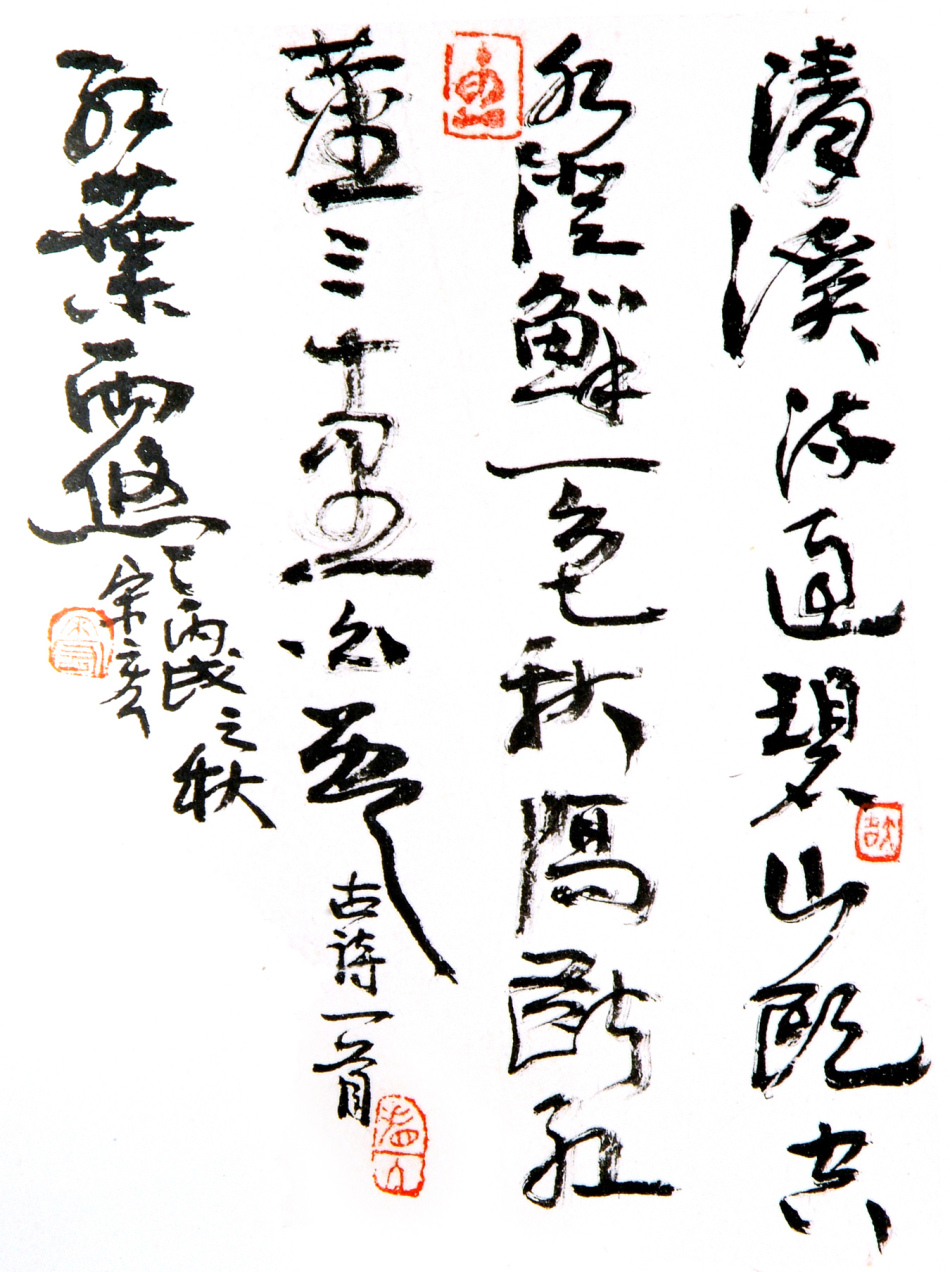 清溪流過碧山頭空
水澄鮮一色秋隔斷紅
塵三十里白雲
古詩一首
紅葉兩悠〻
丙戌之秋
宋